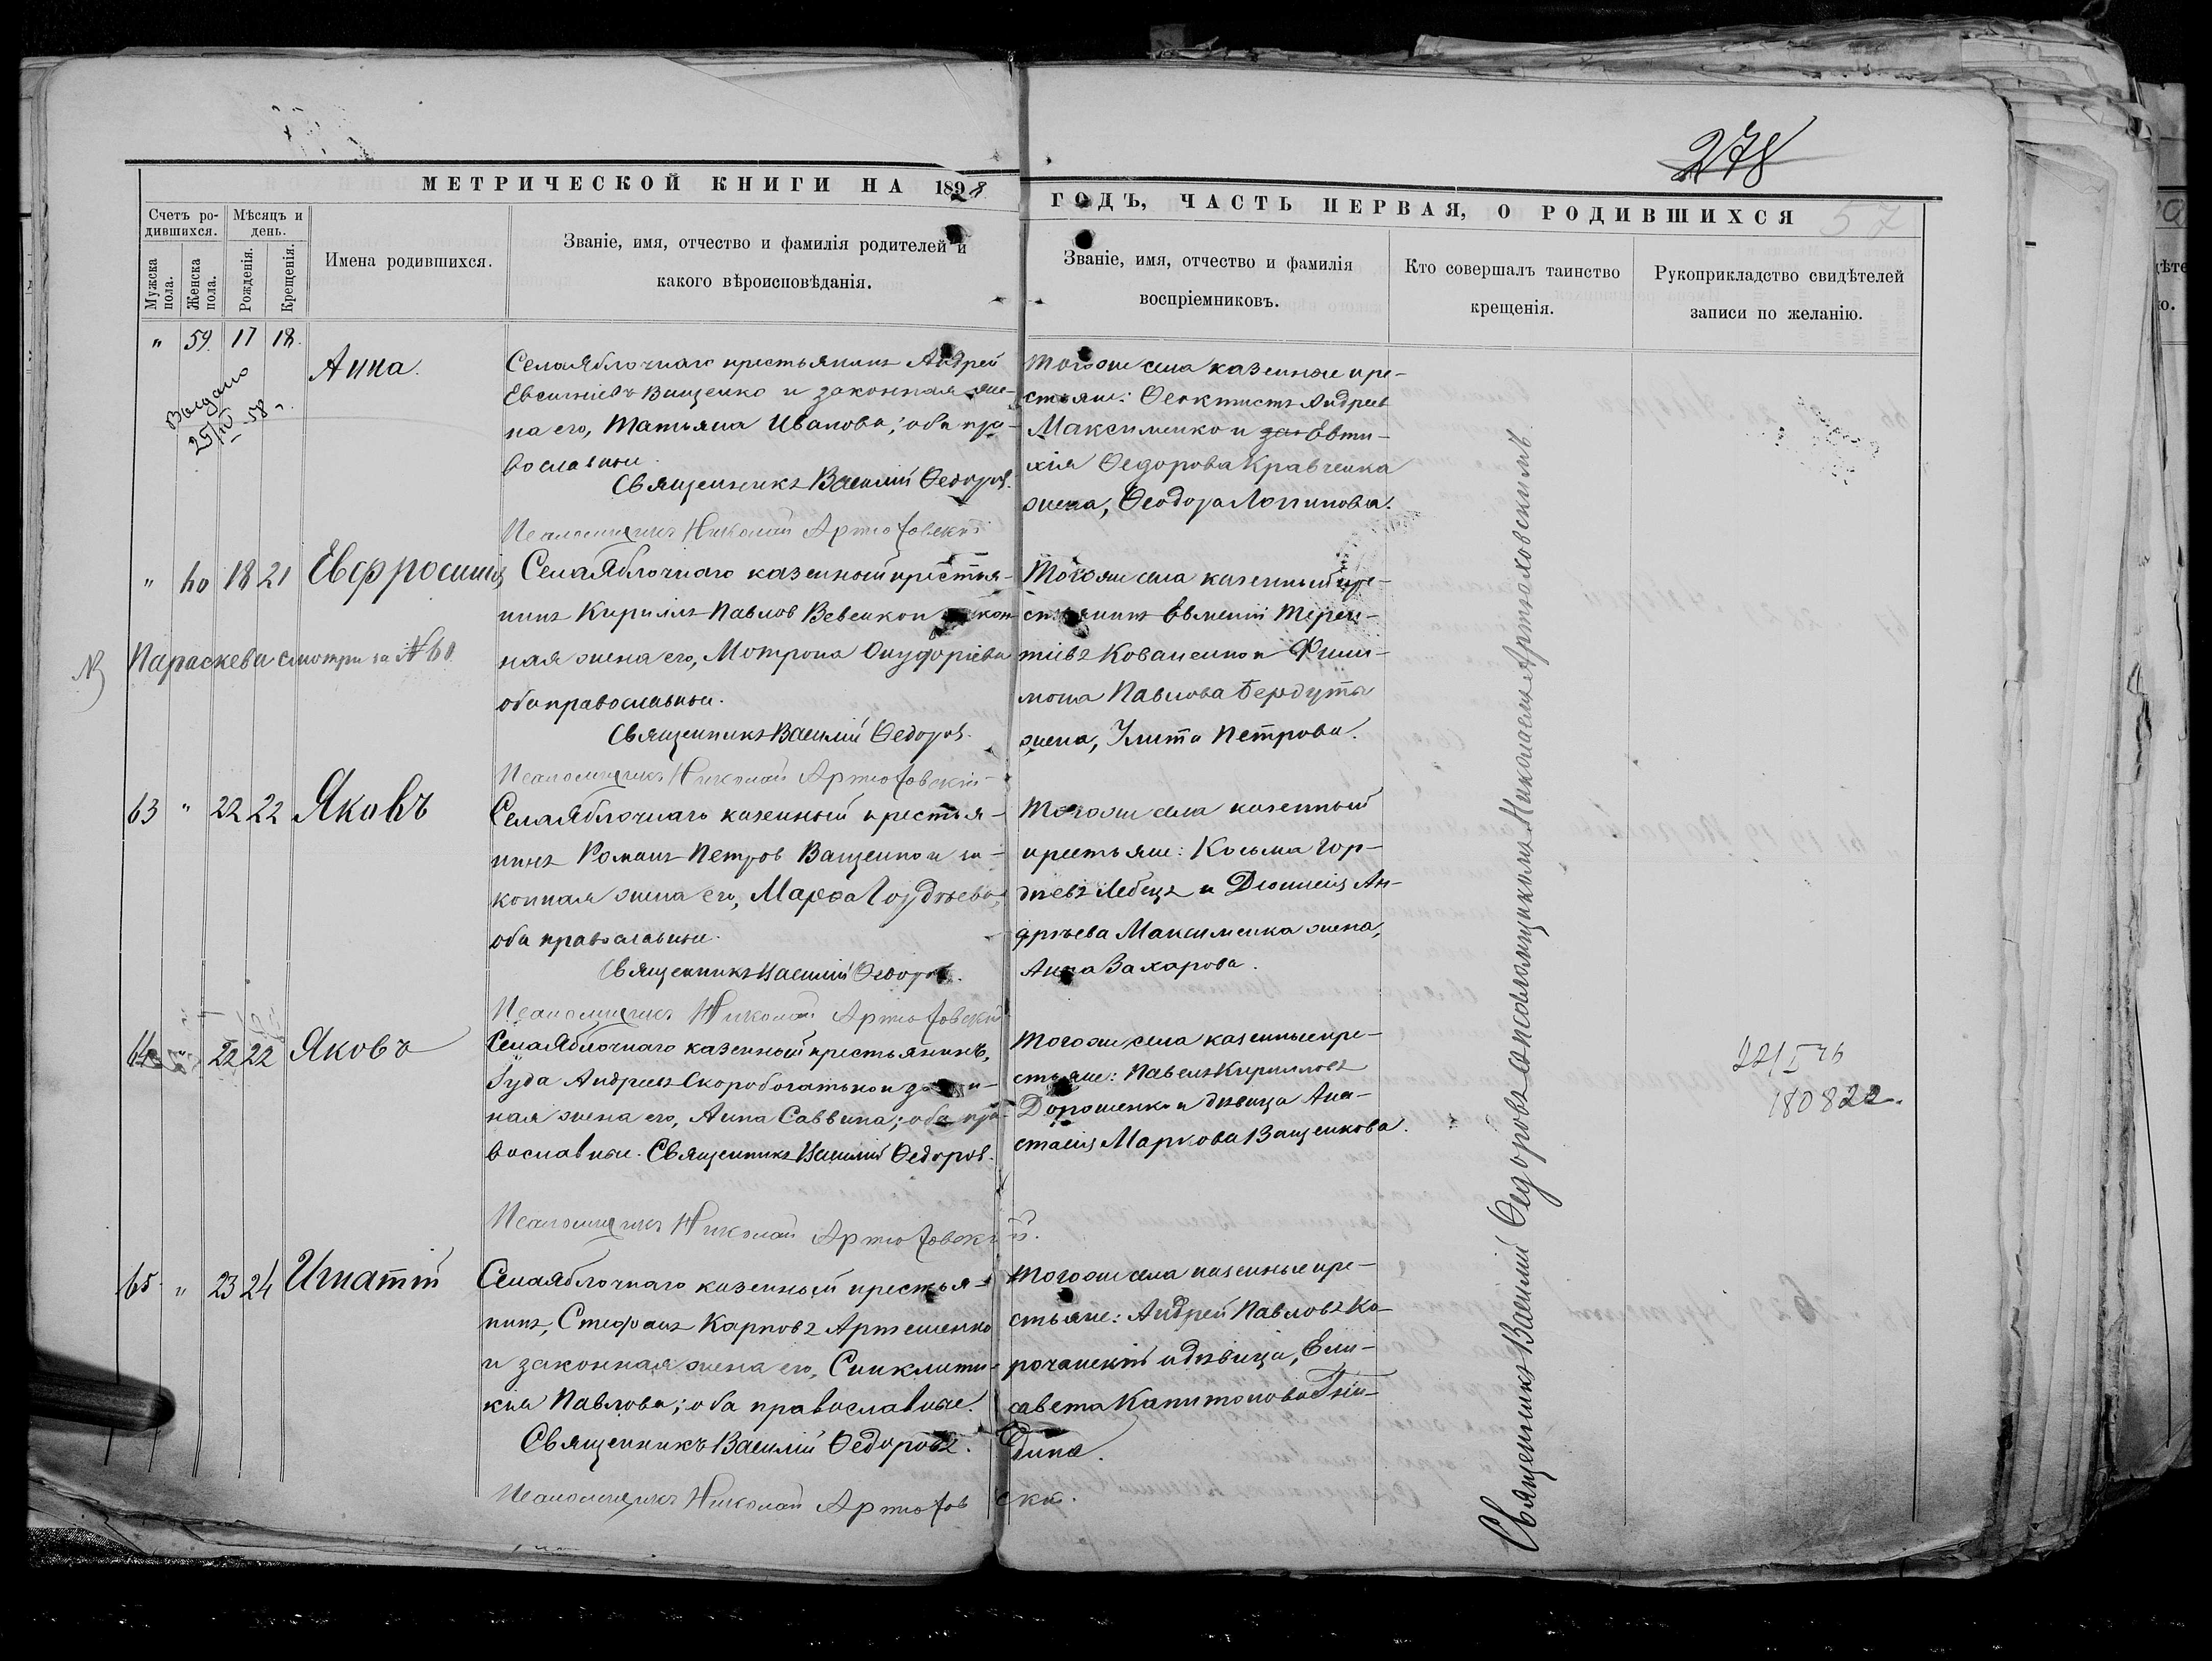 278
57
МЕТРИЧЕСКОЙ КНИГИ НА 1898
ГОДЪ, ЧАСТЬ ПЕРВАЯ, О РОДИВШИХСЯ
Счетъ ро-
дившихся.
Мѣсяцъ и
день.
Мужска
пола.
Женска
пола.
Рожденія.
Крещенія.
Имена родившихся.
Званіе, имя, отчество и фамилія родителей и
какого вѣроисповѣданія.
Званіе, имя, отчество и фамилія
воспріемниковъ.
Кто совершалъ таинство
крещенія.
Рукоприкладство свидѣтелей
записи по желанію.
" 59 17 18.
Анна.
Села Яблочнаго крестьянинъ Андрей
Ващенко и законная же-
на его, Татьяна Иванова; оба пра-
вославные.
Священникъ Василій Ѳедоров.
Псаломщикъ Николай Артюховскій
Тогоже села казенные кре-
стьяне: Ѳеоктистъ Андреев
Максименко и Евти-
хія Ѳедорова Кравченка
жена, Ѳеодора Логинова.
Выдано
25/IV-58 г.
" 60 18 21 Евфросинія
Села Яблочнаго казенный крестья-
нинъ Кириллъ Павлов Вевенко и закон-
ная жена его, Мотрона Онуфріева
оба православные.
Священникъ Василій Ѳедоров.
Псаломщикъ Николай Артюховскій
Тогоже села казенный кре-
стьянинъ Евменій Терен-
тіевъ Коваленко и Фили-
мона Павлова Бердута
жена, Улита Петрова.
Параскева смотри за № 61
63 " 22 22 Яковъ
Села Яблочнаго казенный крестья-
нинъ Романъ Петров Ващенко и за-
конная жена его, Марѳа Гордѣева,
оба православные.
Священникъ Василій Ѳедоров.
Псаломщикъ Николай Артюховскій
Тогоже села казенный
крестьяне: Косьма Гор-
дѣевъ Лебедь и Діонисія Ан-
дрѣева Максименка жена,
Анна Захарова.
64 " 22 22 Яковъ
Села Яблочнаго казенный крестьянинъ,
Іуда Андреевъ Скоробогатько и закон-
ная жена его, Анна Саввина; оба пра-
вославные. Священникъ Василій Ѳедоров.
Псаломщикъ Николай Артюховскій.
Тогоже села казенные кре-
стьяне: Павелъ Кирилловъ
Дорошенко и дѣвица Ана-
стасія Маркова Ващенкова.
22/I 46
180822.
65 " 23 24 Игнатій
Села Яблочнаго казенный крестья-
нинъ, Стефанъ Карповъ Артеменко
и законная жена его, Синклити-
кія Павлова; оба православные.
Священникъ Василій Ѳедоровъ.
Псаломщикъ Николай Артюховскій.
Тогоже села казенные кре-
стьяне: Андрей Павловъ Ко-
рочанскій и дѣвица, Ели-
савета Капитонова Гни-
дина.
Священникъ Василій Ѳедоровъ съ псаломщикомъ Николаемъ Артюховскимъ